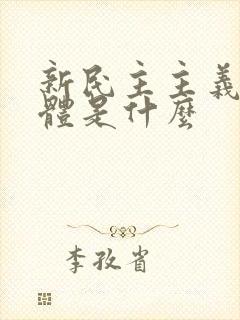 新民主主義
體是什麼
李孜省